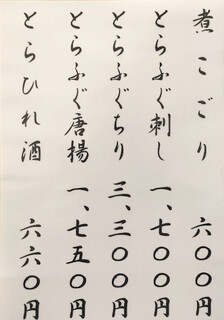 煮こごり 六〇〇円
とらふぐ刺し 一、七〇〇円
とらふぐちり 三、三〇〇円
とらふぐ唐揚 一、七五〇円
とらひれ酒 六六〇円